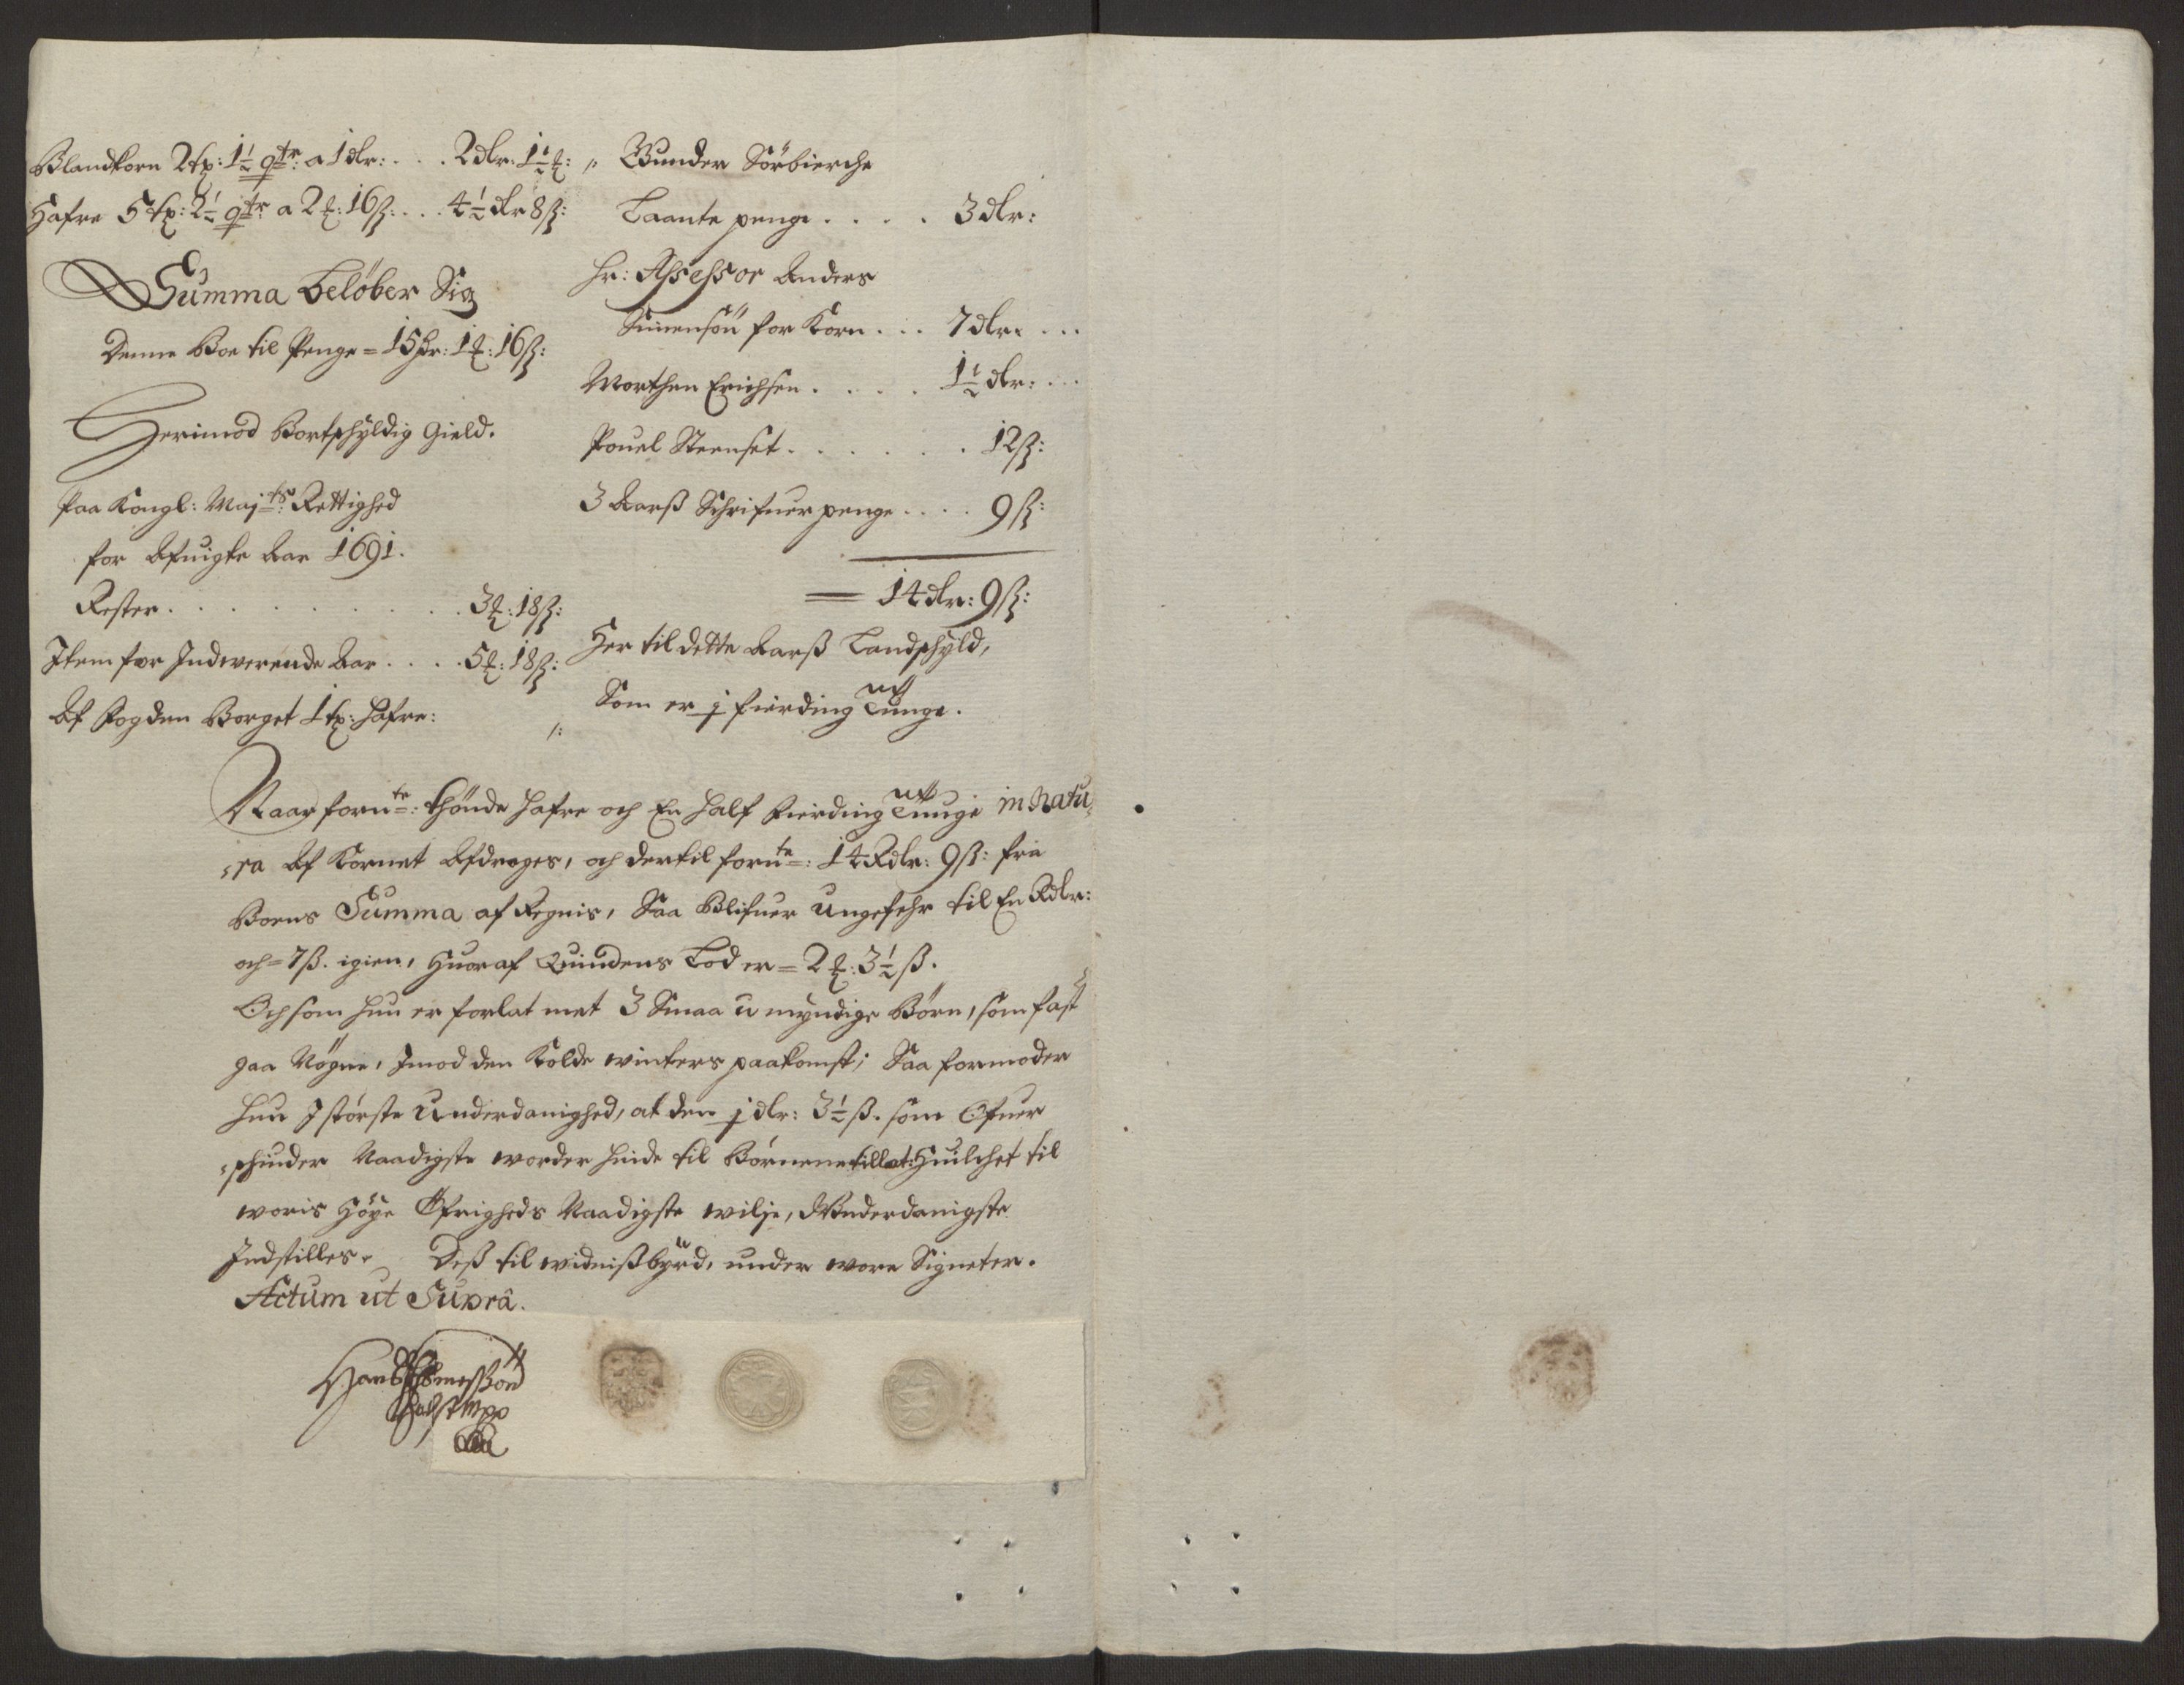 Blandkorn 2 tp: 1½ qtr: a 1 dlr: . . . 2 dlr: 1½ ʒ: "
Hafre 5 tp: 2½ qtr a 2 ʒ: 16 ß: . . . 4½ dlr 8 ß:
Summa Beløber Sig
Denne Boe til Penge = 15 dr: 1 ʒ: 16 ß:
Herimod Bortschÿldig Gield.
Paa Kongl: Majts: Rettighed
for Afuigte Aar 1691.
Rester . . . . . . . . . 3 ʒ: 18 ß:
Item for Indwerende Aar . . . . 5 ʒ: 18 ß:
Af Fogden Borget 1 tp: Hafre: "
Gunder Sörbierche
Laante penge . . . . 3 dlr:
Hr: Assessor Anders
Simensön for Korn . . . 7 dlr. . . .
Morthen Erichsen . . . . 1½ dlr: . . .
Pouel Steenset . . . . . . 12 ß:
3 Aarß Schrifuer penge . . . . 9 ß:
= 14 dlr: 9 ß:
Her til dette Aarß Landschÿld,
Som er j fierding Tunge.
Naar fornte: thönde Hafre och En half Fierding Tunge in Natu-
-ra Af Kornet Afdroges, och dertil fornte: 14 Rdlr: 9 ß: fra
Boens Summa af Regnis, Saa Blifuer Ungefehr til En Rdlr:
och = 7 ß. igien, Huoraf Quindens Lod er = 2 ʒ: 3½ ß.
Och som hun er forlat met 3 Smaa umÿndige Börn, som fast
gaa Nögne, Imod den Kolde winters paakomst; Saa formoder
hun I störste Underdanighed, at den j dlr: 3½ ß. som Ofuer
-schuder Naadigste worder hinde til Börnene tillat: Huilchet til
woris Höÿe Öfrigheds Naadigste wilje, Underdanigste
Indstilles. Deß til widnißbÿrd, under wore Signeter.
Actum ut Supra.
Hans
mpp